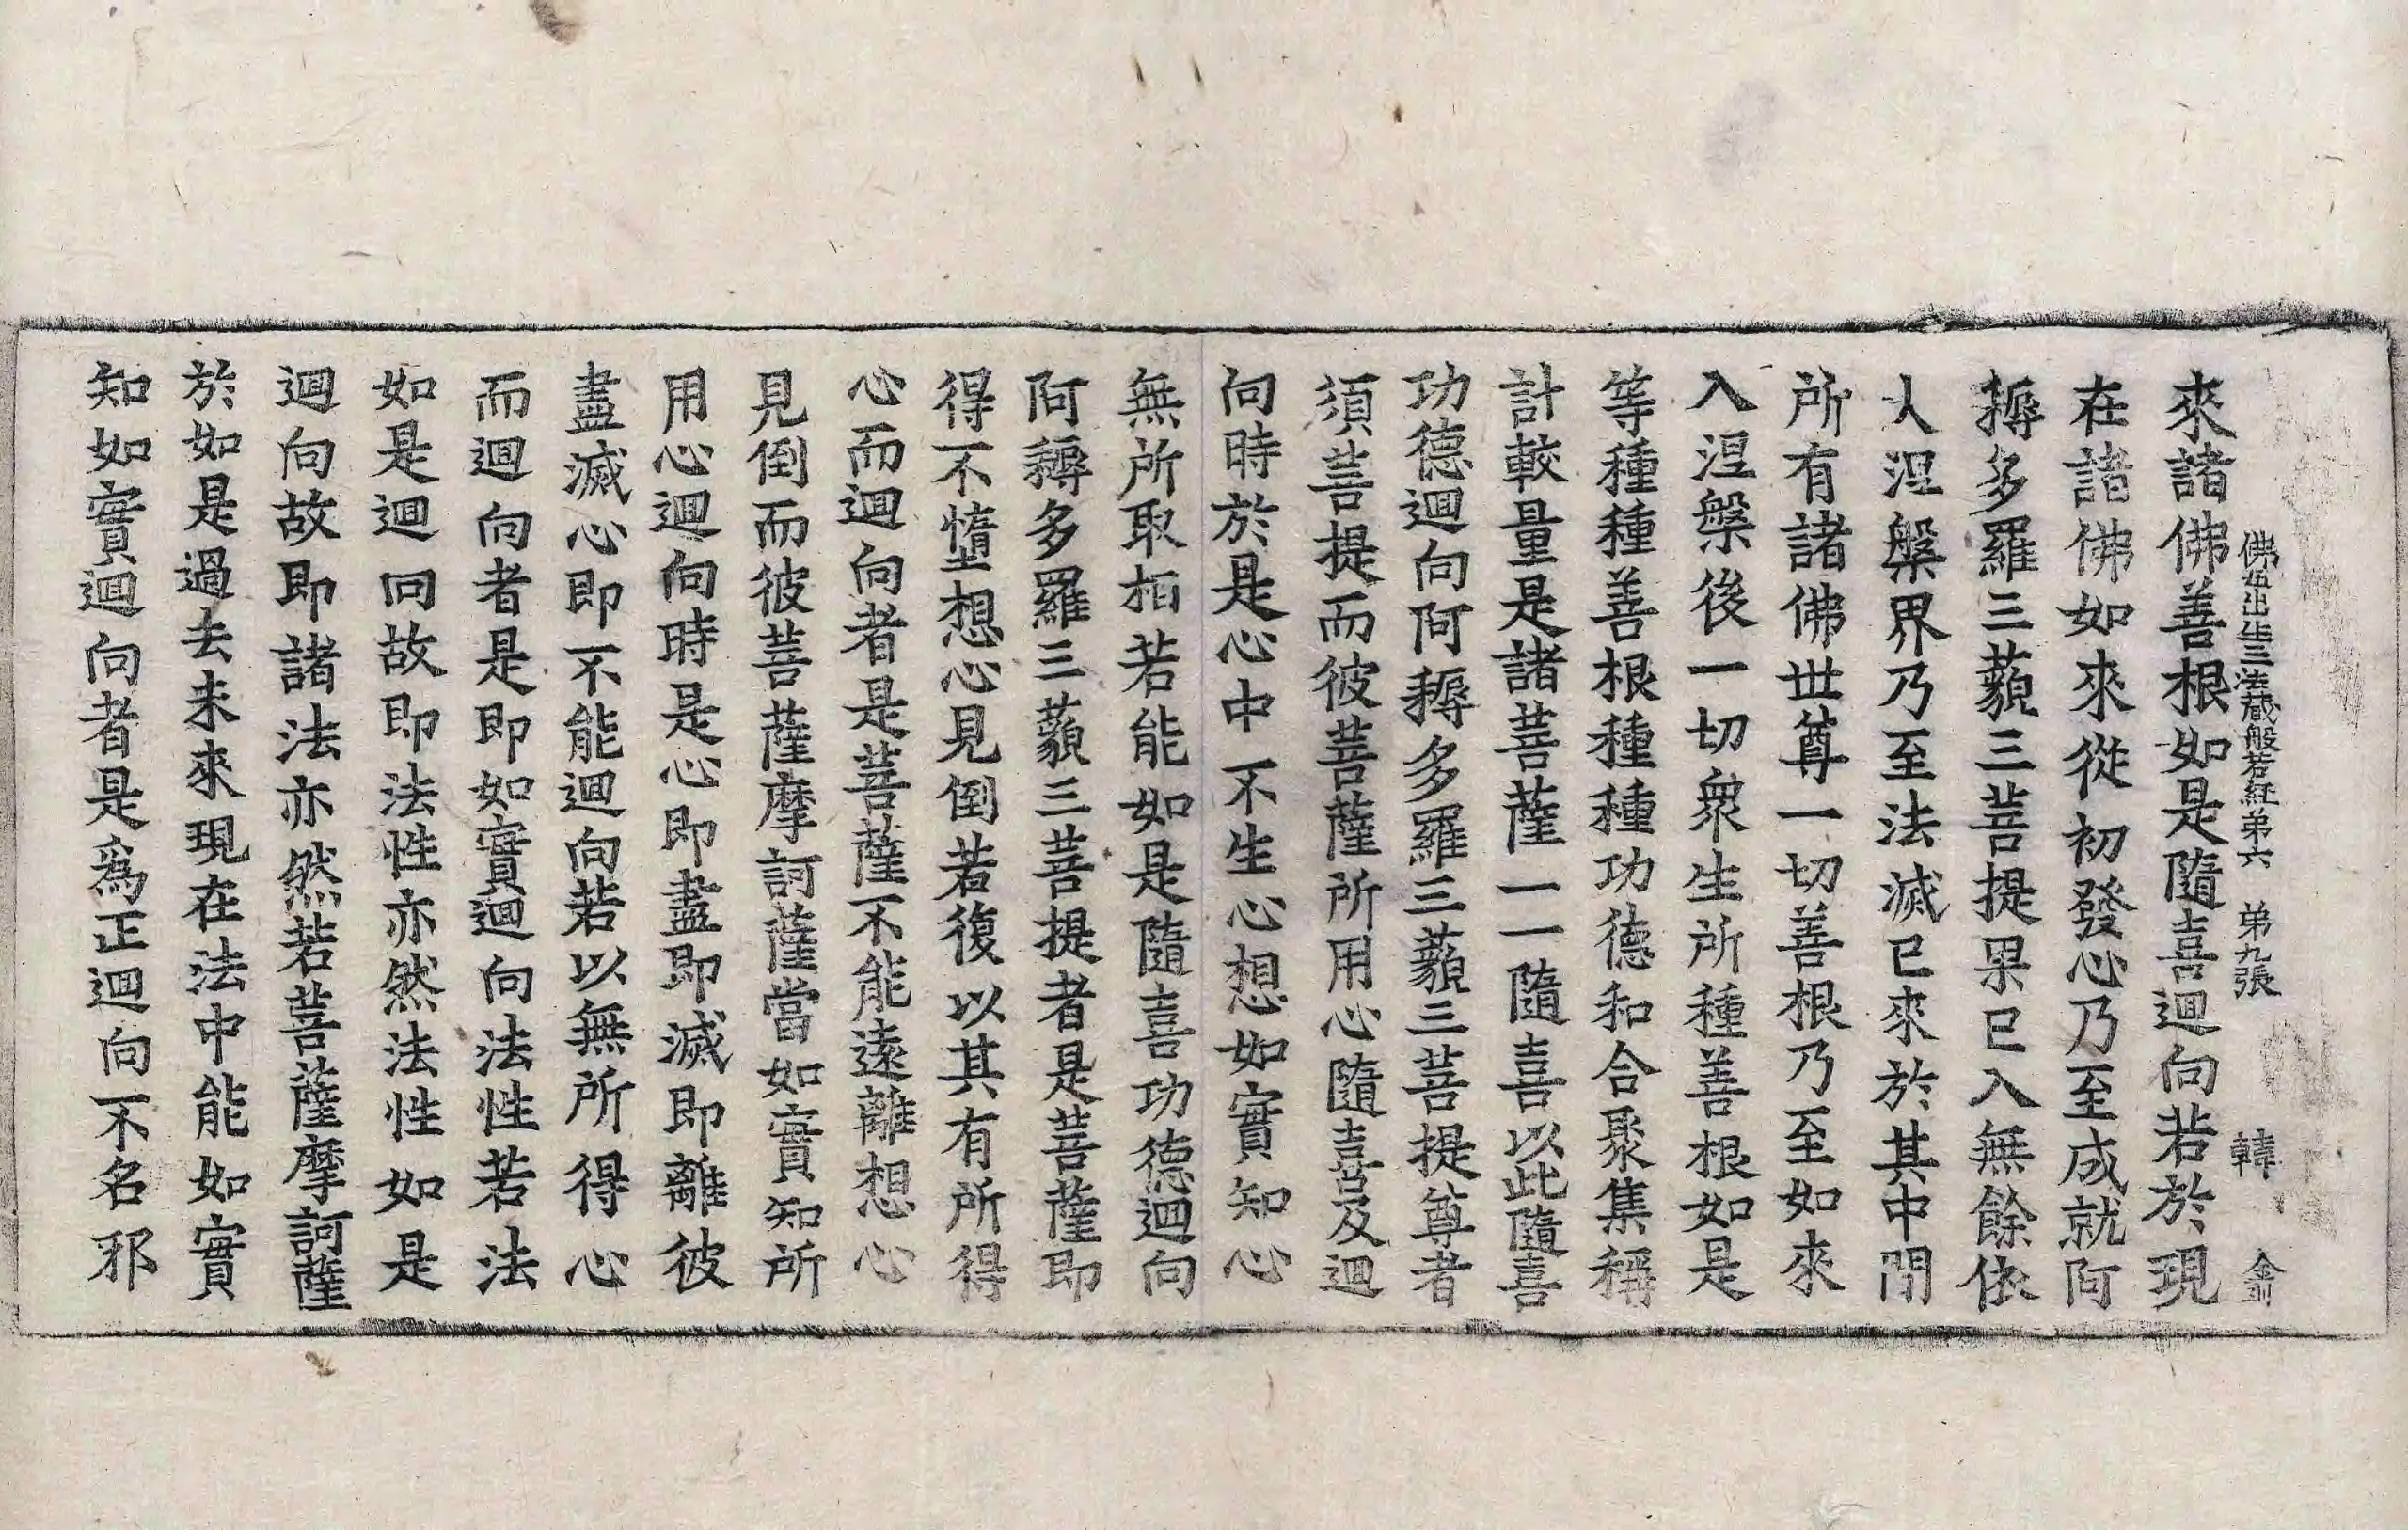 佛母出生三法藏般若経弟六 弟九張 韓 金
來諸佛善根如是隨喜迴向若於現
在諸佛如來從初發心乃至成就阿
耨多羅三藐三菩提果已入無餘依
大涅槃界乃至法滅已來於其中閒
所有諸佛世尊一切善根乃至如來
入涅槃後一切衆生所種善根如是
等種種善根種種功德和合聚集稱
計較量是諸菩薩一一隨喜以此隨喜
功德迴向阿耨多羅三藐三菩提尊者
須菩提而彼菩薩所用心隨喜及迴
向時於是心中不生心想如實知心
無所取相若能如是隨喜功德迴向
阿耨多羅三藐三菩提者是菩薩即
得不墮想心見倒若復以其有所得
心而迴向者是菩薩不能遠離想心
見倒而彼菩薩摩訶薩當如實知所
用心迴向時是心即盡即滅即離彼
盡滅心即不能迴向若以無所得心
而迴向者是即如實迴向法性若法
如是迴向故即法性亦然法性如是
迴向故即諸法亦然若菩薩摩訶薩
於如是過去未來現在法中能如實
知如實迴向者是爲正迴向不名邪